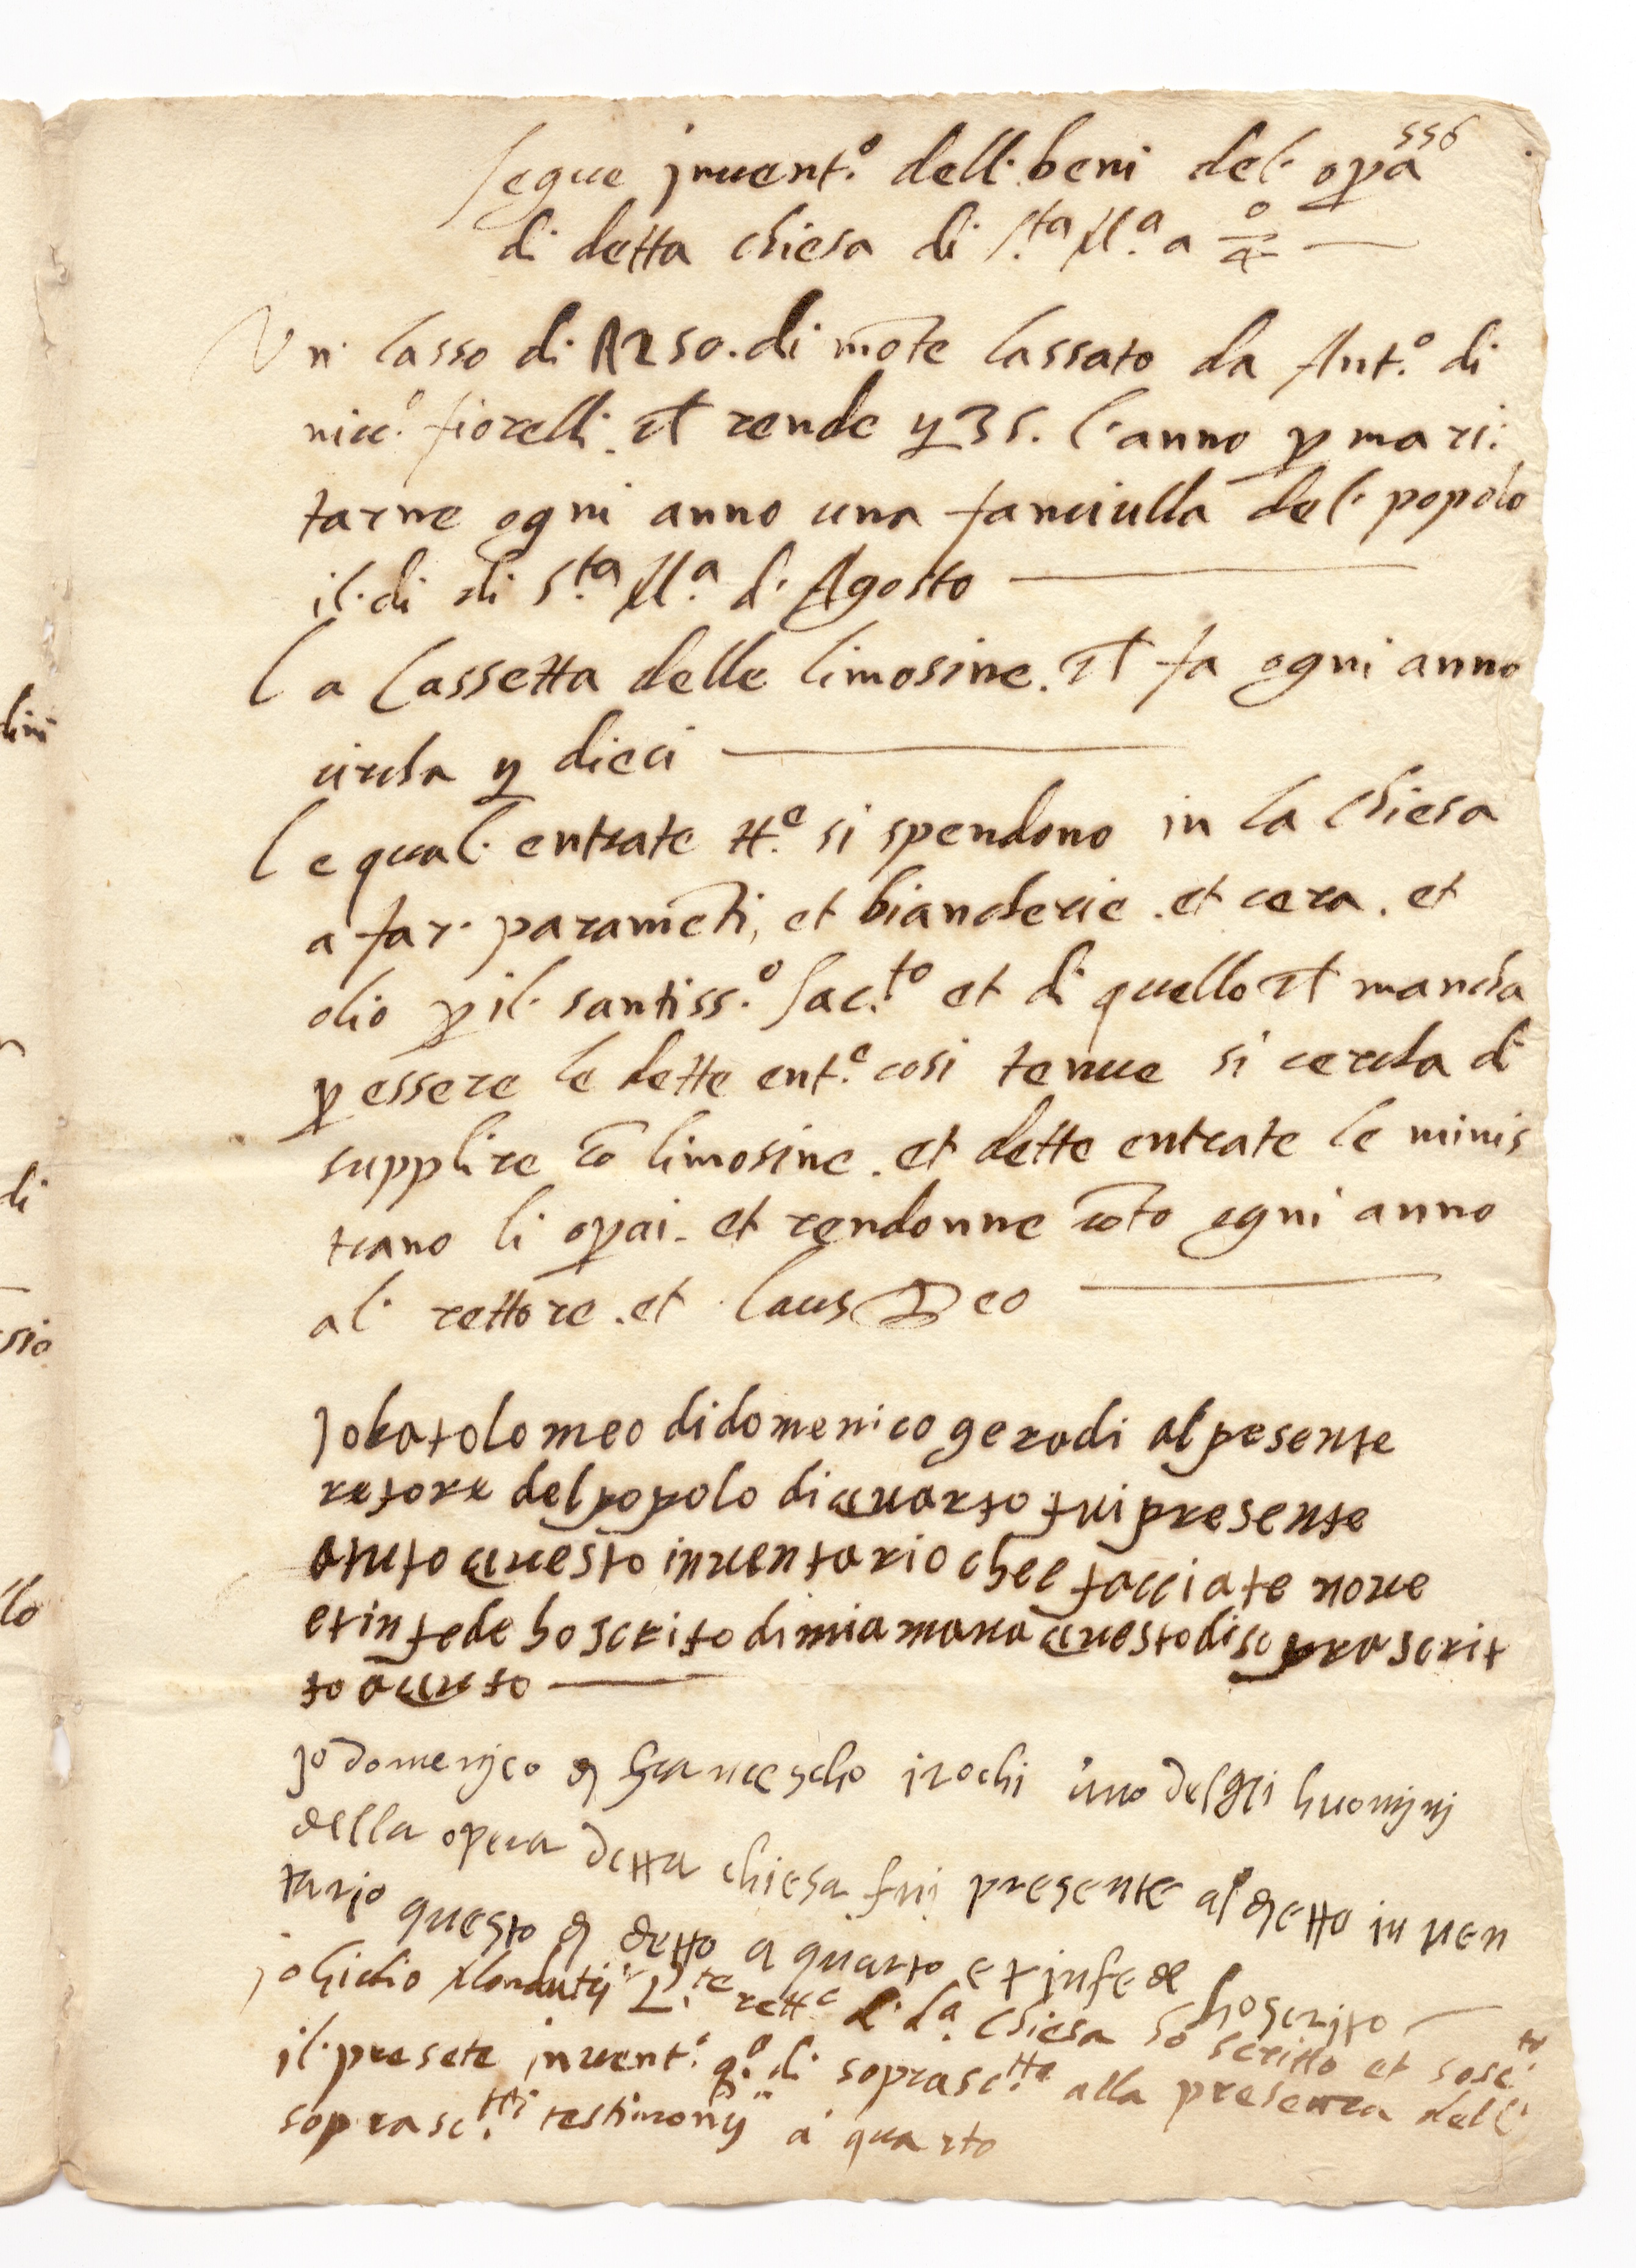 556
segue inuent.o dell. beni del. opa
di detta chiesa di S.ta M.a a o/4
Vn. lasso di 250. di mōte lassato da Ant.o di
nicc.o fiorelli. rende 35. l'anno p mari:
tarne ogni anno una fanciulla del. popolo
il. di di S.ta M.a d. Agosto
La Cassetta delle limosine. fa ogni anno
circha dieci
Le qual. entrate tt.e si spendono in la Chiesa
a far. paramēti, et biancherie. et cera. et
olio p il. santiss.o Sac.to et di quello mancha
p essere le dette ent.e cosi tenue si cercha di
supplire cō limosine. et dette entrate le minis
trano li opai. et rendonne cōto ogni anno
al. rettore. et laus Deo
Jo batolomeo di domenico geradi al pesente
retore del popolo di quarto fui presente
atuto questo inuentario che e facciate noue
et in fede ho scrito di mia mana questo di sopra scrit
to a quarto
Jo domenjco di francescho uno delgli huominj
della opera detta chiesa fuj presente al detto in uen
tarjo questo di detto a quarto et in fede
ho scrjto
jo Gidio te rett.e di d.a Chiesa ho scritto et sosc.to
il. presēte inuent.o q.o di soprasc.tto alla presenza dell.
soprasc.tti testimonij a quarto